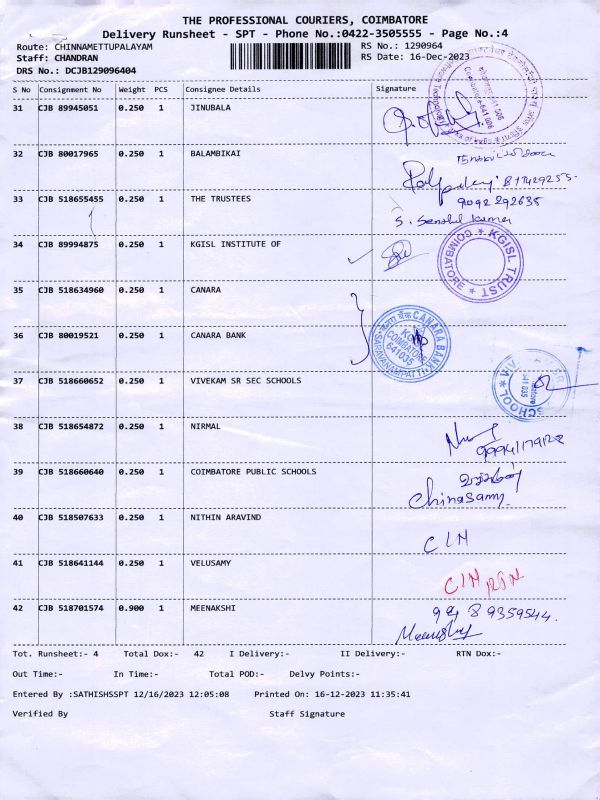 THE PROFESSIONAL COURIERS, COIMBATORE
Delivery Runsheet - SPT - Phone No.:0422-3505555 - Page No.:4
Route: CHINNAMETTUPALAYAM
RS No.: 1290964
Staff: CHANDRAN
RS Date: 16-Dec-2023
DRS No.: DCJB129096404
S No Consignment No Weight PCS Consignee Details Signature
31 CJB 89945051 0.250 1 JINUBALA
32 CJB 80017965 0.250 1 BALAMBIKAI
33 CJB 518655455 0.250 1 THE TRUSTEES
9092292635
S. Senthil Kumar
34 CJB 89994875 0.250 1 KGISL INSTITUTE OF
KGISL TRUST * COIMBATORE *
35 CJB 518634960 0.250 1 CANARA
36 CJB 80019521 0.250 1 CANARA BANK
CANARA BANK
COIMBATORE
641035
SARAVANAMPATTI
37 CJB 518660652 0.250 1 VIVEKAM SR SEC SCHOOLS
641 035
SCHOOL
38 CJB 518654872 0.250 1 NIRMAL
39 CJB 518660640 0.250 1 COIMBATORE PUBLIC SCHOOLS
Chinasamy
40 CJB 518507633 0.250 1 NITHIN ARAVIND
CIN
41 CJB 518641144 0.250 1 VELUSAMY
CIN RTN
42 CJB 518701574 0.900 1 MEENAKSHI
Tot. Runsheet:- 4 Total Dox:- 42 I Delivery:- II Delivery:- RTN Dox:-
Out Time:- In Time:- Total POD:- Delvy Points:-
Entered By :SATHISHSSPT 12/16/2023 12:05:08 Printed On: 16-12-2023 11:35:41
Verified By Staff Signature